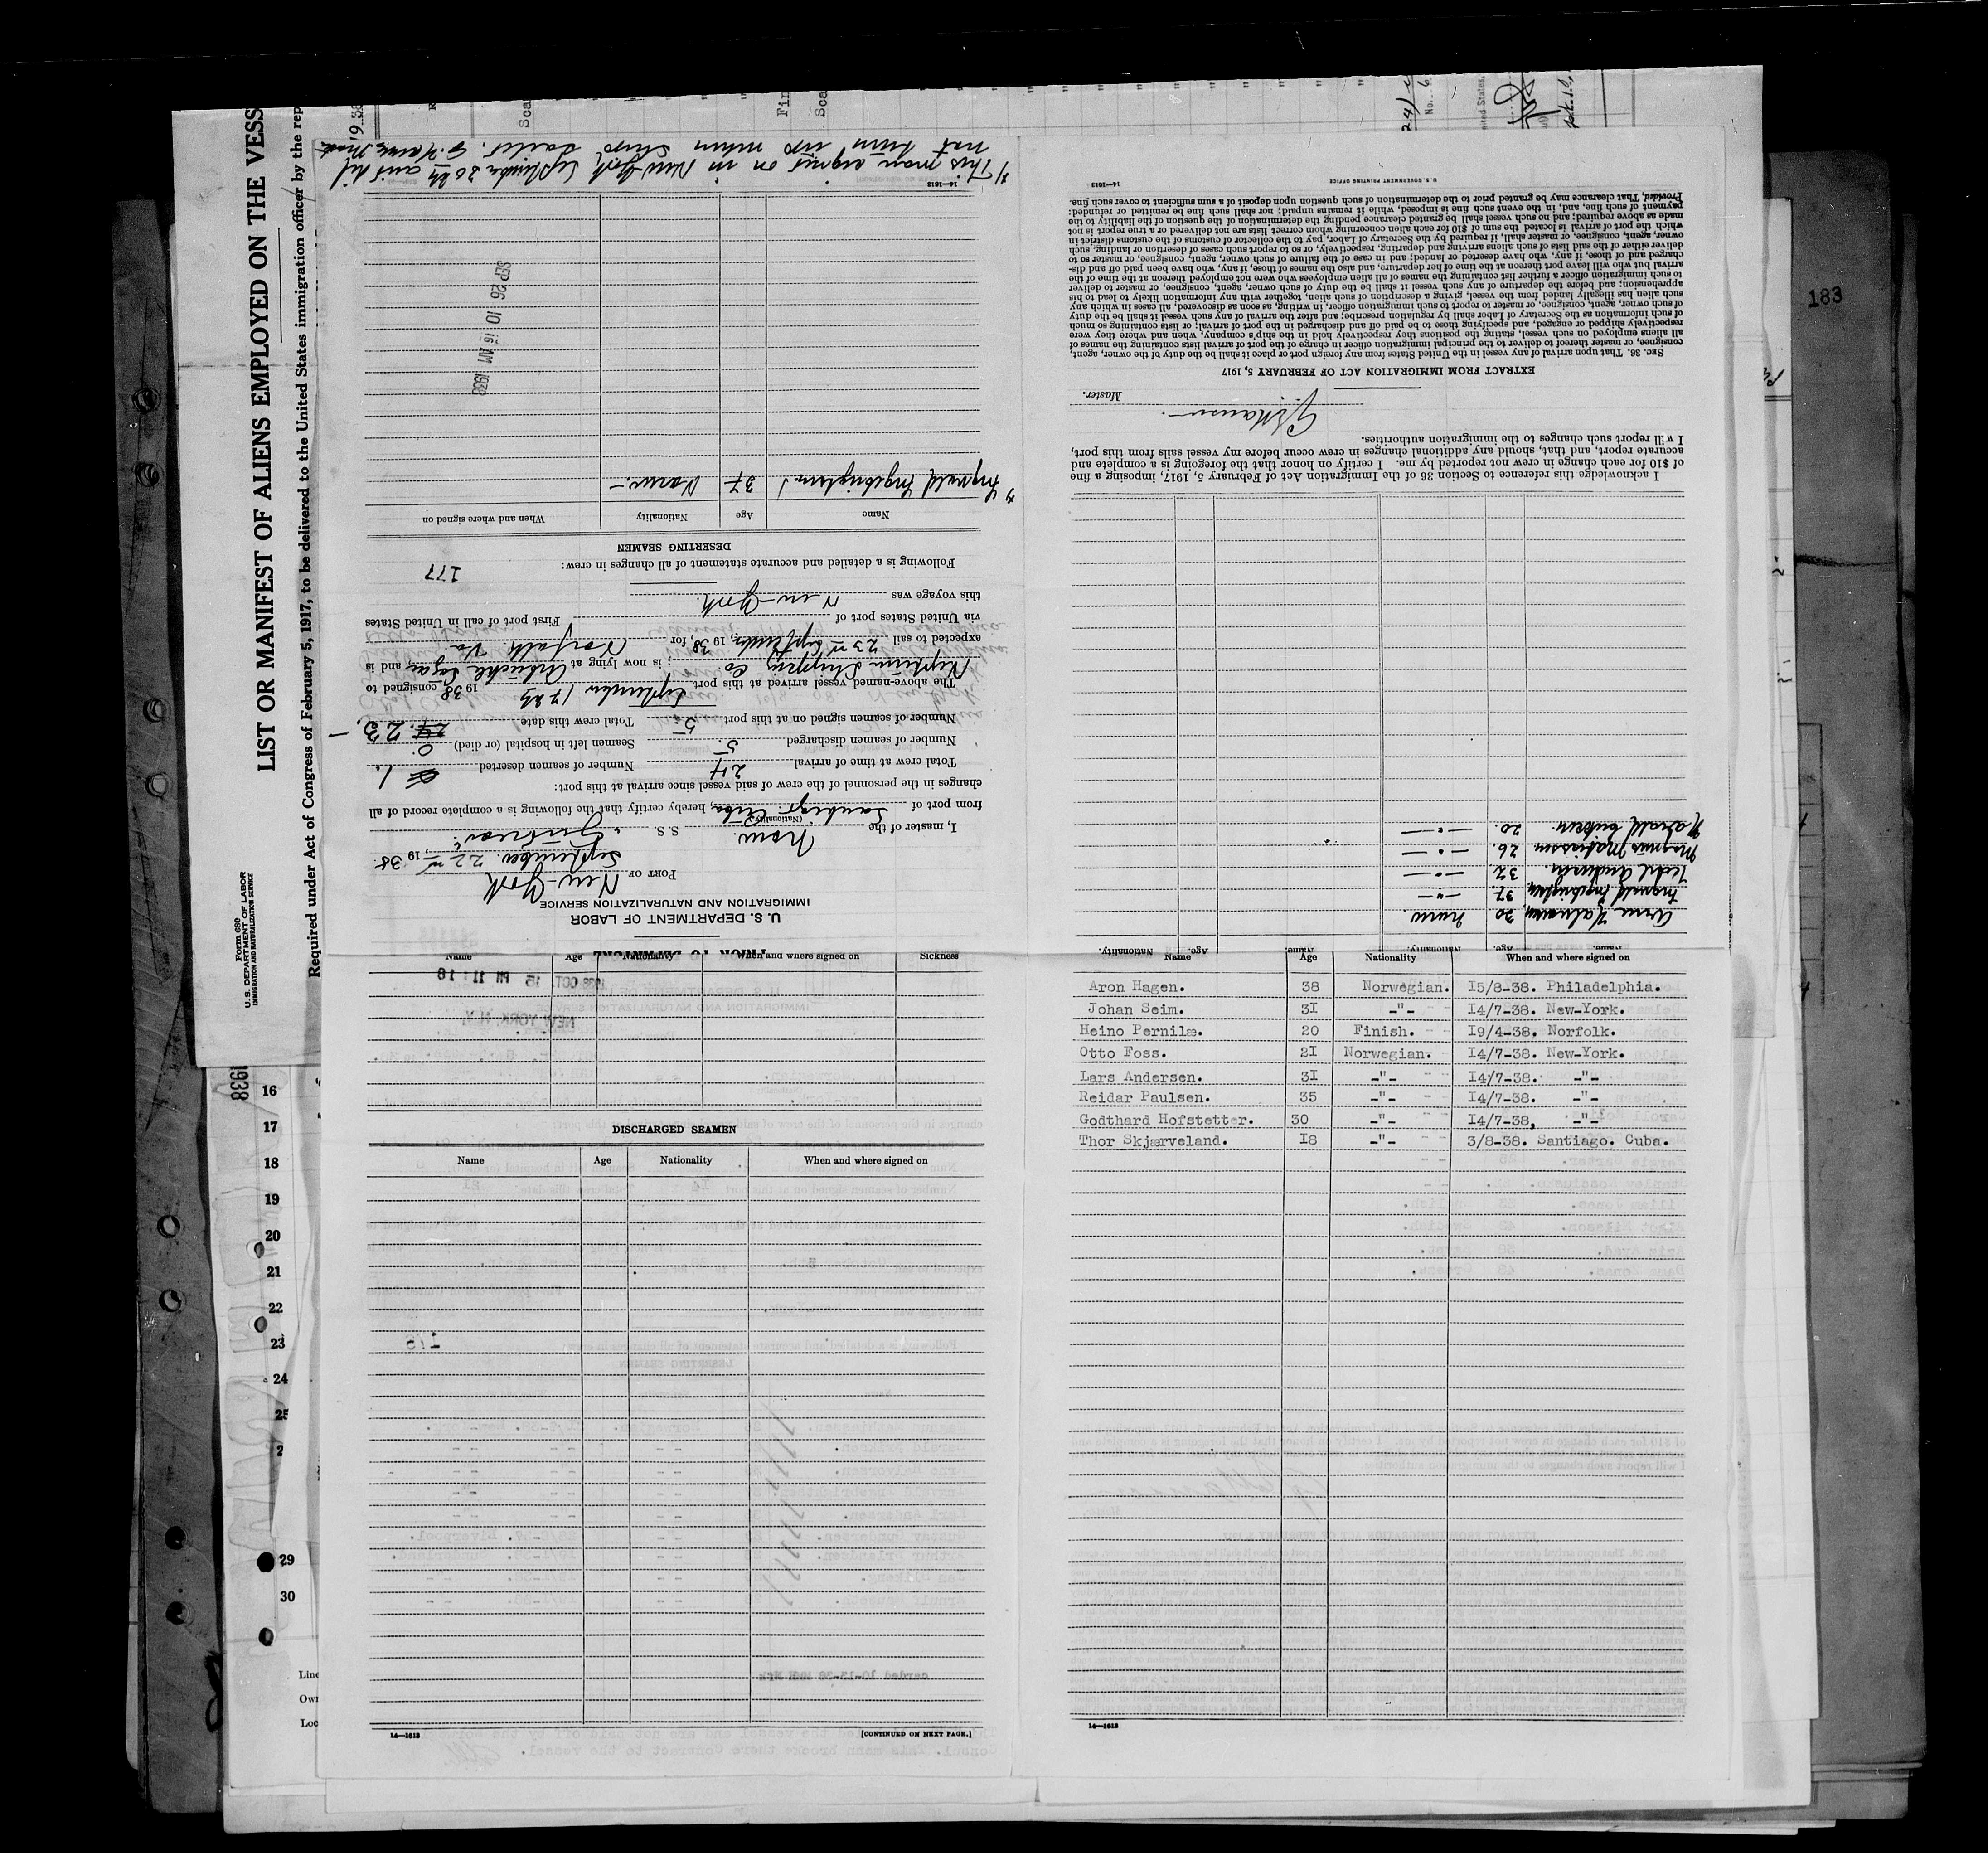 LIST OR MANIFEST OF ALIENS EMPLOYED ON THE VESS
Required under Act of Congress of February 5, 1917, to be delivered to the United States immigration officer by the rep
Form 680
U. S. DEPARTMENT OF LABOR
IMMIGRATION AND NATURALIZATION SERVICE
183
U. S. DEPARTMENT OF LABOR
IMMIGRATION AND NATURALIZATION SERVICE
PORT OF New-York
September 22nd, 1938.
I, master of the Norw. S. S. "
(Nationality)
from port of Cuba, hereby certify that the following is a complete record of all
changes in the personnel of the crew of said vessel since arrival at this port:
Total crew at time of arrival 24 Number of seamen deserted 1.
Number of seamen discharged 5. Seamen left in hospital (or died) 0.
Number of seamen signed on at this port 5 Total crew this date 23.
The above-named vessel arrived at this port September 17th 1938 consigned to
Neptune Shipping Co.; is now lying at and is
expected to sail 23rd September, 1938, for Norfolk Va.
via United States port of First port of call in United States
this voyage was New-York.
Following is a detailed and accurate statement of all changes in crew:
177
DESERTING SEAMEN
Name Age Nationality When and where signed on
x) Ingvald Ingebrigtsen 37 Norw.-
SEP 26 10 16 AM 1938
14—1613
x) This man signed on in New York September 20th and did
not turn up when ship sailed. G. Hansen, Master
Name. Age. Nationality. Name. Age. Nationality.
Arne Halvorsen, 30 Norw.
Ingvald Ingebrigtsen, 37. -"-
Andersen, 32 -"-
Magnus Mathiassen 26. -"-
Harald Eriksen. 20. -"-
I acknowledge this reference to Section 36 of the Immigration Act of February 5, 1917, imposing a fine
of $10 for each change in crew not reported by me. I certify on honor that the foregoing is a complete and
accurate report, and that, should any additional changes in crew occur before my vessel sails from this port,
I will report such changes to the immigration authorities.
Master.
EXTRACT FROM IMMIGRATION ACT OF FEBRUARY 5, 1917
SEC. 36. That upon arrival of any vessel in the United States from any foreign port or place it shall be the duty of the owner, agent,
consignee, or master thereof to deliver to the principal immigration officer in charge of the port of arrival lists containing the names of
all aliens employed on such vessel, stating the positions they respectively hold in the ship's company, when and where they were
respectively shipped or engaged, and specifying those to be paid off and discharged in the port of arrival; or lists containing so much
of such information as the Secretary of Labor shall by regulation prescribe; and after the arrival of any such vessel it shall be the duty
of such owner, agent, consignee, or master to report to such immigration officer, in writing, as soon as discovered, all cases in which any
such alien has illegally landed from the vessel, giving a description of such alien, together with any information likely to lead to his
apprehension; and before the departure of any such vessel it shall be the duty of such owner, agent, consignee, or master to deliver
to such immigration officer a further list containing the names of all alien employees who were not employed thereon at the time of the
arrival but who will leave port thereon at the time of her departure, and also the names of those, if any, who have been paid off and dis-
charged and of those, if any, who have deserted or landed; and in case of the failure of such owner, agent, consignee, or master so to
deliver either of the said lists of such aliens arriving and departing, respectively, or so to report such cases of desertion or landing, such
owner, agent, consignee, or master shall, if required by the Secretary of Labor, pay to the collector of customs of the customs district in
which the port of arrival is located the sum of $10 for each alien concerning whom correct lists are not delivered or a true report is not
made as above required; and no such vessel shall be granted clearance pending the determination of the question of the liability to the
payment of such fine, and, in the event such fine is imposed, while it remains unpaid; nor shall such fine be remitted or refunded:
Provided, That clearance may be granted prior to the determination of such question upon deposit of a sum sufficient to cover such fine.
U. S. GOVERNMENT PRINTING OFFICE 14—1613
Name Age Nationality When and where signed on Sickness
1938 OCT. 15 PM 11:16
NEW YORK N.Y.
DISCHARGED SEAMEN
Name Age Nationality When and where signed on
14—1613
[CONTINUED ON NEXT PAGE.]
Name Age Nationality When and where signed on
Aron Hagen. 38 Norwegian. I5/8-38. Philadelphia.
Johan Seim. 3I -"- I4/7-38. New-York.
Heino Pernilæ. 20 Finish. I9/4-38. Norfolk.
Otto Foss. 2I Norwegian. I4/7-38. New-York.
Lars Andersen. 3I -"- I4/7-38. -"-
Reidar Paulsen. 35 -"- I4/7-38. -"-
Godthard Hofstetter. 30 -"- I4/7-38, -"-
Thor Skjærveland. I8 -"- 3/8-38. Santiago. Cuba.
14—1613
1938
16
17
18
19
20
21
22
23
24
25
2
29
30
Line
Own
Loc